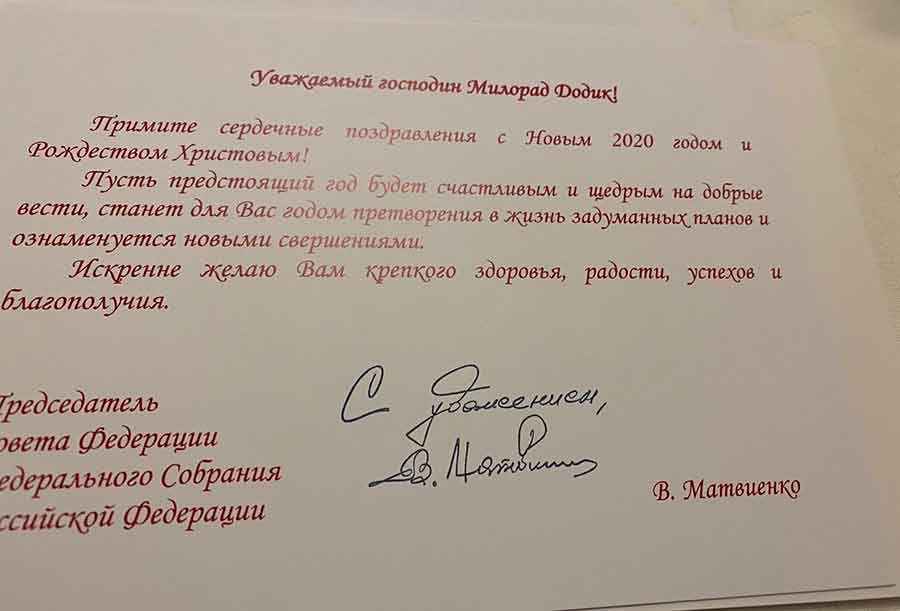 Уважаемый господин Милорад Додик!
Примите сердечные поздравления с Новым 2020 годом и
Рождеством Христовым!
Пусть предстоящий год будет счастливым и щедрым на добрые
вести, станет для Вас годом претворения в жизнь задуманных планов и
ознаменуется новыми свершениями.
Искренне желаю Вам крепкого здоровья, радости, успехов и
благополучия.
С уважением,
редседатель
овета Федерации
едерального Собрания
ссийской Федерации
В. Матвиенко